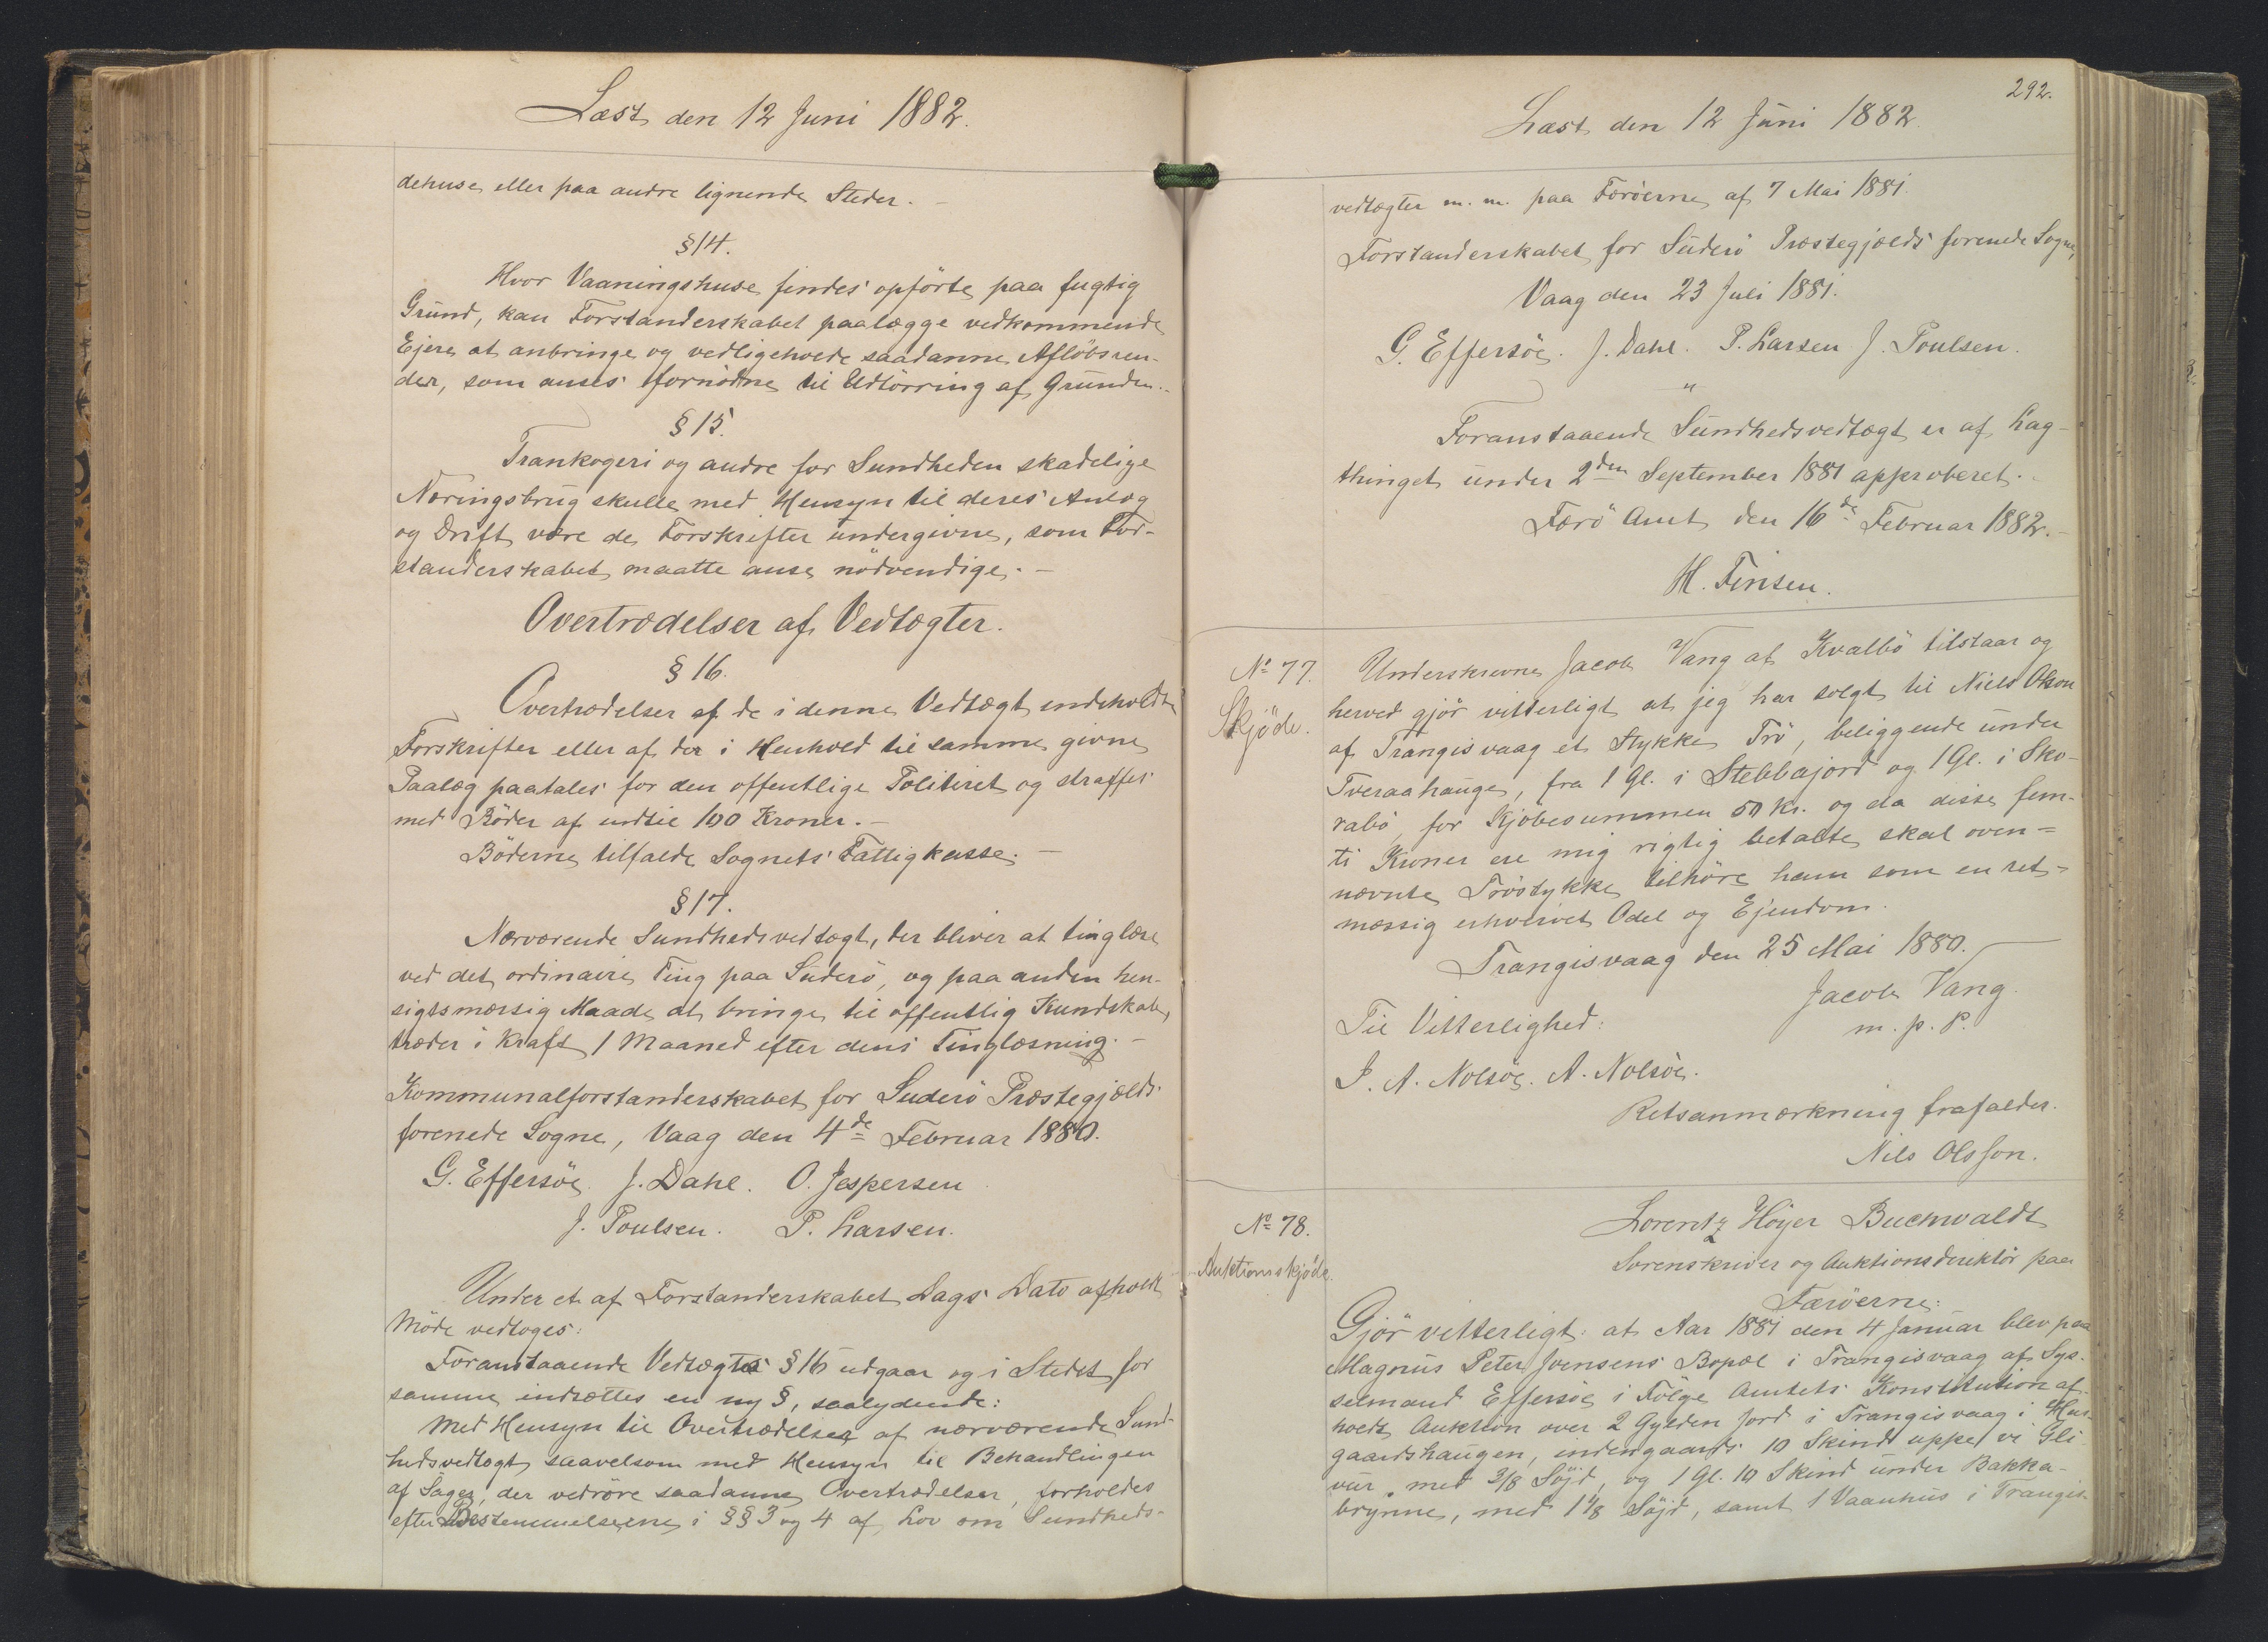 Læst den 12 Juni 1882.
dehuse eller paa andre lignende Steder. –
§ 14.
Hvor Vaaningshuse findes opførte paa fugtig
Grund, kan Forstanderskabet paalægge vedkommende
Ejere at anbringe og vedligeholde saadanne Afløbsren-
der, som anses fornødne til Udtørring af Grunden. –
§ 15.
Trankogeri og andre for Sundheden skadelige
Næringsbrug skulle med Hensyn til deres Anlæg
og Drift være de Forskrifter undergivne, som For-
standerskabet maatte anse nødvendige. –
Overtrædelser af Vedtægter.
§ 16.
Overtrædelser af de i denne Vedtægt indeholdte
Forskrifter eller af der i Henhold til samme givne
Paalæg paatales for den offentlige Politiret og straffes
med Bøder af indtil 100 Kroner. –
Bøderne tilfalde Sognets Fattigkasse. –
§ 17.
Nærværende Sundhedsvedtægt, der bliver at tinglæse
ved det ordinaire Ting paa Suderø, og paa anden hen-
sigtsmæssig Maade at bringe til offentlig Kundskab,
træder i Kraft 1 Maaned efter dens Tinglæsning. –
Kommunalforstanderskabet for Suderø Præstegjælds
forenede Sogne, Vaag den 4de Februar 1880.
G. Effersøe. J. Dahl. O. Jespersen
J. Poulsen. P. Larsen.
Under et af Forstanderskabet Dags Dato afholdt
Møde vedtoges:
Foranstaaende Vedtægts § 16 udgaar og i Stedet for
samme indsættes en ny §, saalydende:
Med Hensyn til Overtrædelser af nærværende Sund-
hedsvedtægt saavelsom med Hensyn til Behandlingen
af Sager, der vedrøre saadanne Overtrædelser, forholdes
efter Bestemmelserne i §§ 3 og 4 af Lov om Sundheds-
292.
Læst den 12 Juni 1882
vedtægter m. m. paa Færøerne af 7 Mai 1881.
Forstanderskabet for Suderø Præstegjælds forenede Sogne,
Vaag den 23 Juli 1881.
G. Effersøe. J. Dahl. P. Larsen J. Poulsen.
"
Foranstaaende Sundhedsvedtægt er af Lag-
thinget under 2den September 1881 approberet. –
Færø Amt den 16de Februar 1882. –
H. Finsen.
No 77.
Skjøde.
Underskrevne Jacob Vang af Kvalbø tilstaar og
herved gjør vitterligt at jeg har solgt til Niels Olson
af Trangisvaag et Stykke Trø, beliggende under
Tveraahauge, fra 1 Gl. i Stebbajord og 1 Gl. i Sko-
rabø, for Kjøbesummen 50 Kr. og da disse fem-
ti Kroner ere mig rigtig betalte, skal oven-
nævnte Trøstykke tilhøre ham som en ret-
mæssig erhvervet Odel og Ejendom.
Trangisvaag den 25 Mai 1880.
Jacob Vang.
m. p. P.
Til Vitterlighed:
J. A. Nolsøe. A. Nolsøe.
Retsanmærkning frafalder.
Nils Olsson.
No 78.
Auktionsskjøde.
Lorentz Høyer Buchwaldt
Sorenskriver og Auktionsdirektør paa
Færøerne:
Gjør vitterligt: at Aar 1881 den 4 Januar blev paa
Magnus Peter Joensens Bopæl i Trangisvaag af Sys-
selmand Effersøe i Følge Amtets Konstitution af-
holdt Auktion over 2 Gylden Jord i Trangisvaag i Hus-
gaardshaugen, indengaards 10 Skind uppe vi Gli-
vur med 3/8 Søjd, og 1 Gl. 10 Skind under Bakka-
brynne, med 1 1/8 Søjd, samt 1 Vaanhus i Trangis-